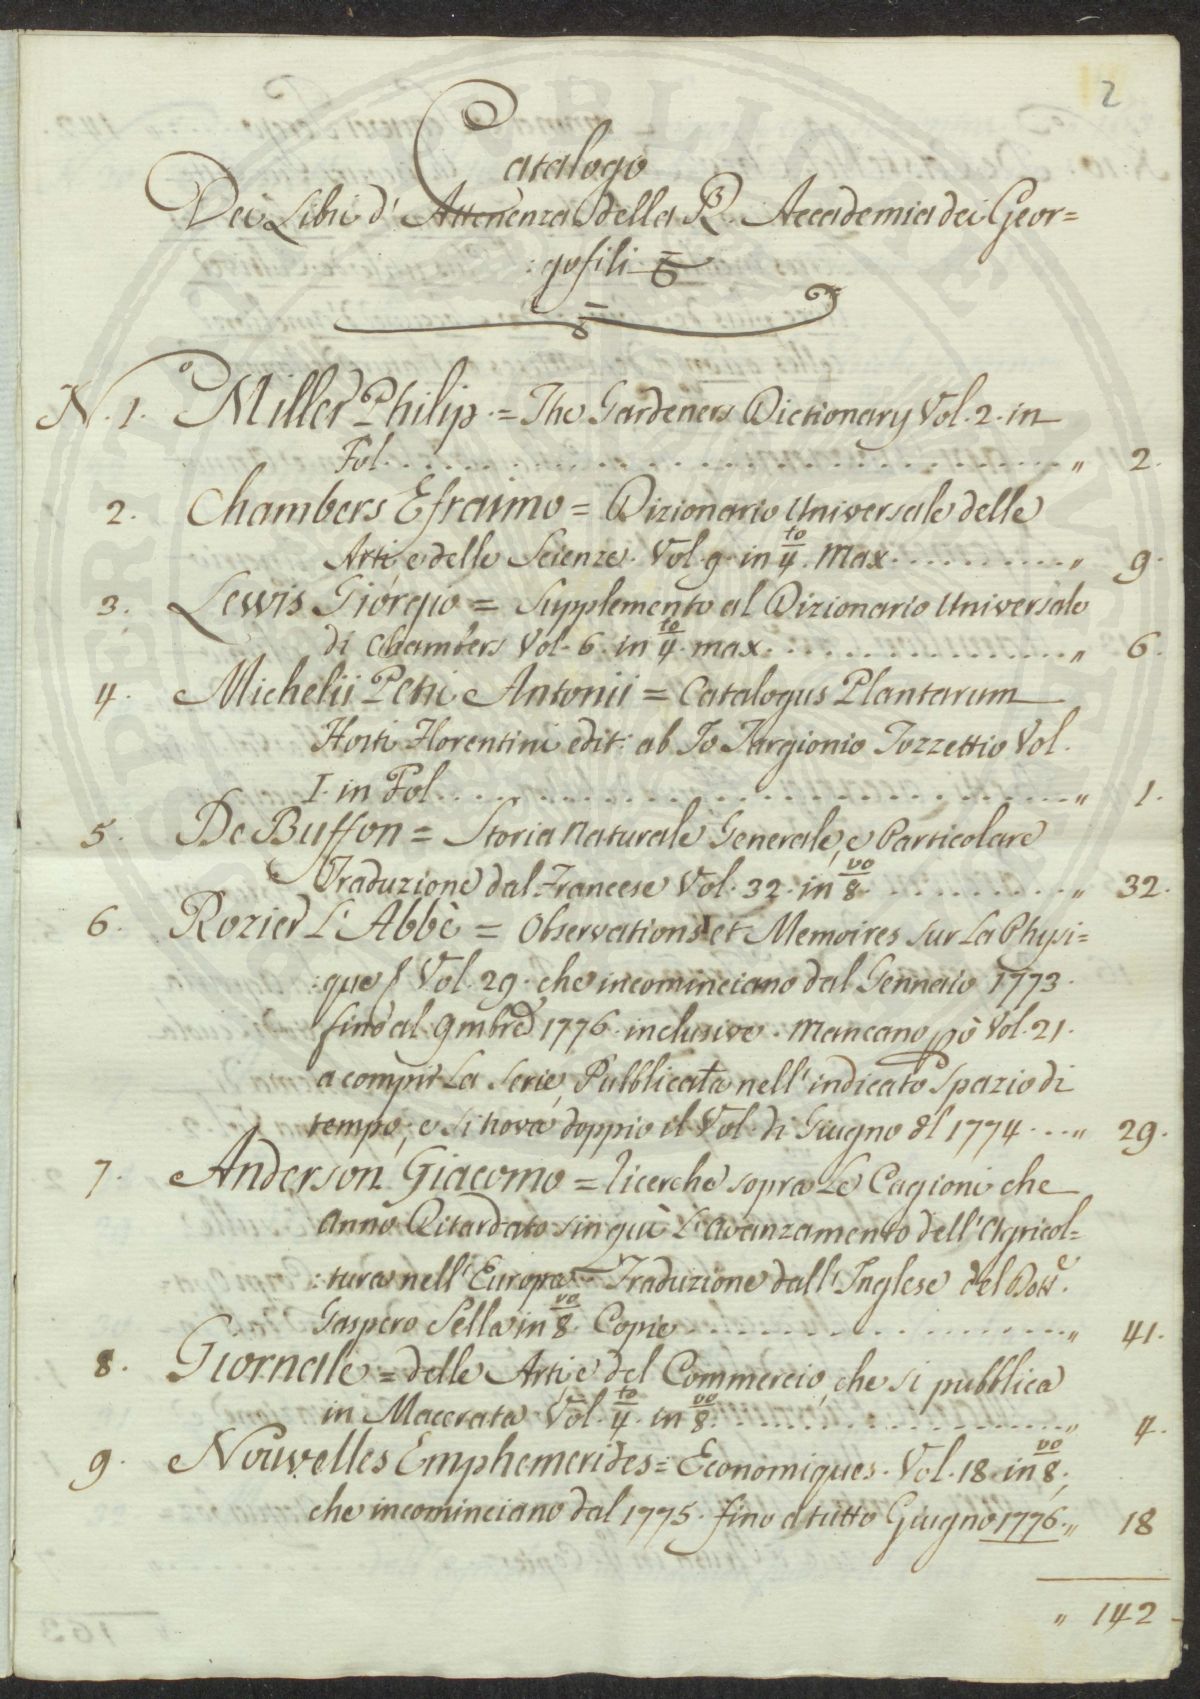 2
Catalogo
Dei Libri d' Attenenza della R. Accademia dei Geor=
:gofili
N.° 1. Miller Philip = The Gardeners Dictionary Vol. 2. in
Fol. . . . . . . . . . . . . . . . . . . . . . . . . . . . " 2.
2. Chambers Efraimo = Dizionario Universale delle
Arti e delle Scienze. Vol. 9. in 4.to Max. . . . . . . . . . " 9.
3. Lewis Giorgio = Supplemento al Dizionario Universale
di Chambers Vol. 6. in 4.to max. . . . . . . . . . . . . . . " 6.
4. Michelii Petri Antonii = Catalogus Plantarum
Horti Florentini edit: ab Jo Targionio Tozzettio Vol.
I. in Fol. . . . . . . . . . . . . . . . . . . . . . . . . . " 1.
5. De Buffon = Storia Naturale Generale, e Particolare
Traduzione dal Francese Vol. 32. in 8.vo . . . . . . . . . . " 32.
6. Rozier L'Abbè = Observations et Memoires sur La Physi=
:que Vol. 29. che incominciano dal Gennaio 1773.
fino al 9mbre 1776. inclusive. Mancano pò Vol. 21.
a compir La Serie Pubblicata nell'indicato Spazio di
tempo; e si trova doppio il Vol. di Giugno dl 1774 . . . " 29.
7. Anderson Giacomo = ricerche sopra Le Cagioni che
anno Ritardato sin qui L'avanzamento dell'Agricol=
:tura nell'Europa = Traduzione dall'Inglese del Dott.e
Gaspero Sella in 8.vo Copie . . . . . . . . . . . . . . . . . " 41.
8. Giornale = delle Arti e del Commercio, che si pubblica
in Macerata Vol. 4.to in 8.vo . . . . . . . . . . . . . . . . " 4.
9. Nouvelles Emphemerides = Economiques. Vol. 18. in 8.vo,
che incominciano dal 1775. fino a tutto Giugno 1776. " 18
" 142